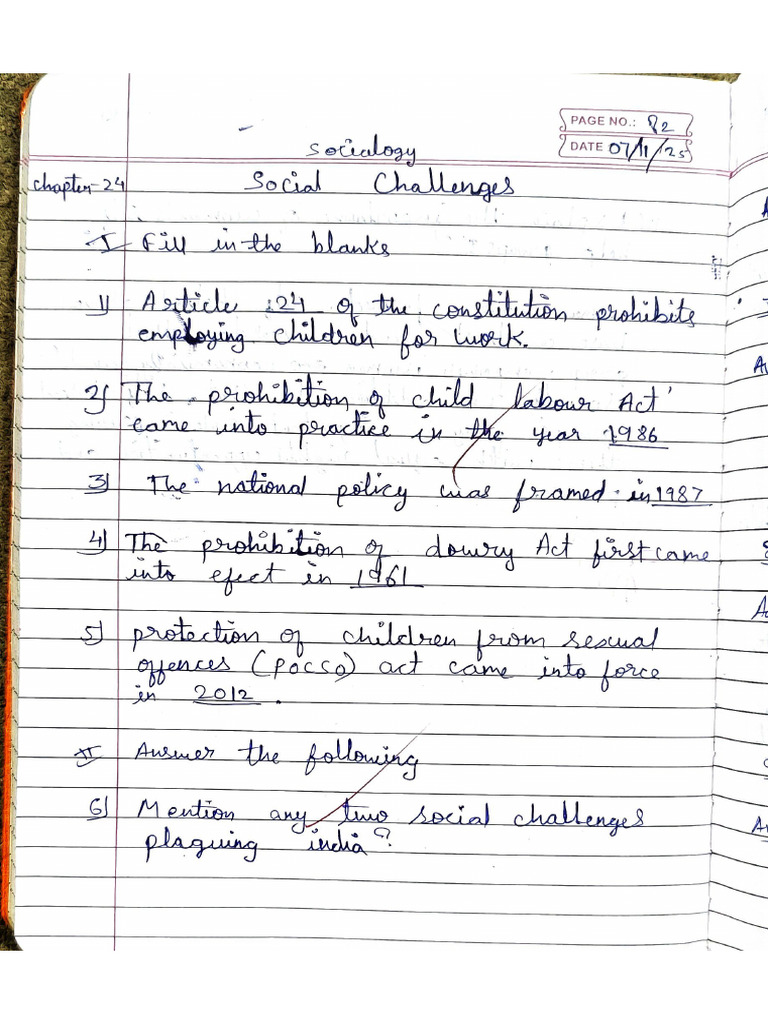 PAGE NO.: 82
DATE 07/11/25
Socialogy
Chapter-24 Social Challenges
I Fill in the blanks
1) Article :24 of the constitution prohibits
employing children for work.
2) The prohibition of child labour Act'
came into practice in the year 1986
3) The national policy was framed in 1987
4) The prohibition of dowry Act first came
into efect in 1961
5) protection of children from sexual
offences (POCSO) act came into force
in 2012.
II Answer the following
6) Mention any two social challenges
plaguing india?